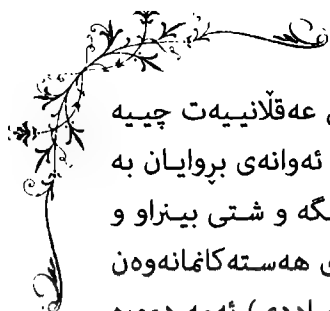 عەقڵانییەت چییە
ئەوانەی بڕوایان بە
و شتی بینراو و
هەستەکانمانەوەن